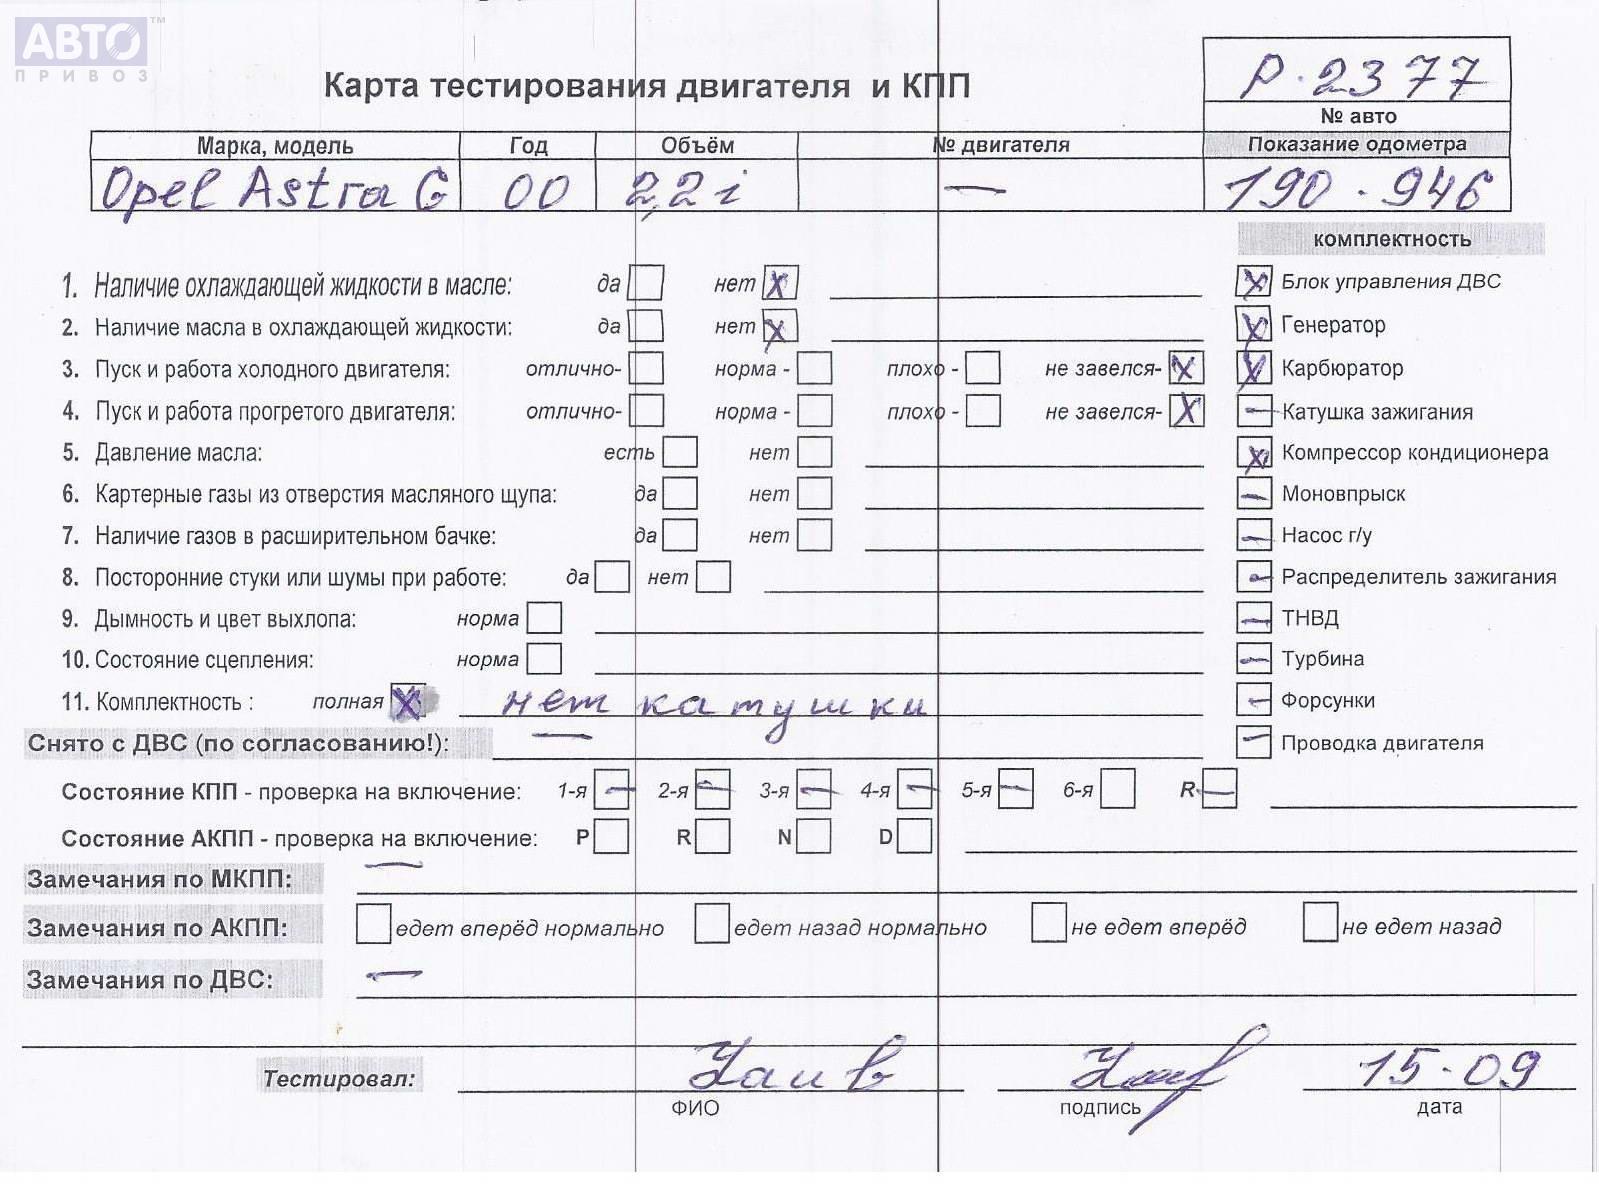 АВТО ™
ПРИВОЗ
Карта тестирования двигателя и КПП
Р·2377
№ авто
Марка, модель Год Объём № двигателя Показание одометра
Opel Astra G 00 2,2 i — 190·946
комплектность
1. Наличие охлаждающей жидкости в масле: да нет X Блок управления ДВС
2. Наличие масла в охлаждающей жидкости: да нет X Генератор
3. Пуск и работа холодного двигателя: отлично- норма - плохо - не завелся- X Карбюратор
4. Пуск и работа прогретого двигателя: отлично- норма - плохо - не завелся- X Катушка зажигания
5. Давление масла: есть нет Компрессор кондиционера
6. Картерные газы из отверстия масляного щупа: да нет Моновпрыск
7. Наличие газов в расширительном бачке: да нет Насос г/у
8. Посторонние стуки или шумы при работе: да нет Распределитель зажигания
9. Дымность и цвет выхлопа: норма ТНВД
10. Состояние сцепления: норма Турбина
11. Комплектность : полная X нет катушки Форсунки
Снято с ДВС (по согласованию!): — Проводка двигателя
Состояние КПП - проверка на включение: 1-я 2-я 3-я 4-я 5-я 6-я R-
Состояние АКПП - проверка на включение: P R N D
Замечания по МКПП: —
Замечания по АКПП: едет вперёд нормально едет назад нормально не едет вперёд не едет назад
Замечания по ДВС: —
Тестировал: 15·09
ФИО подпись дата